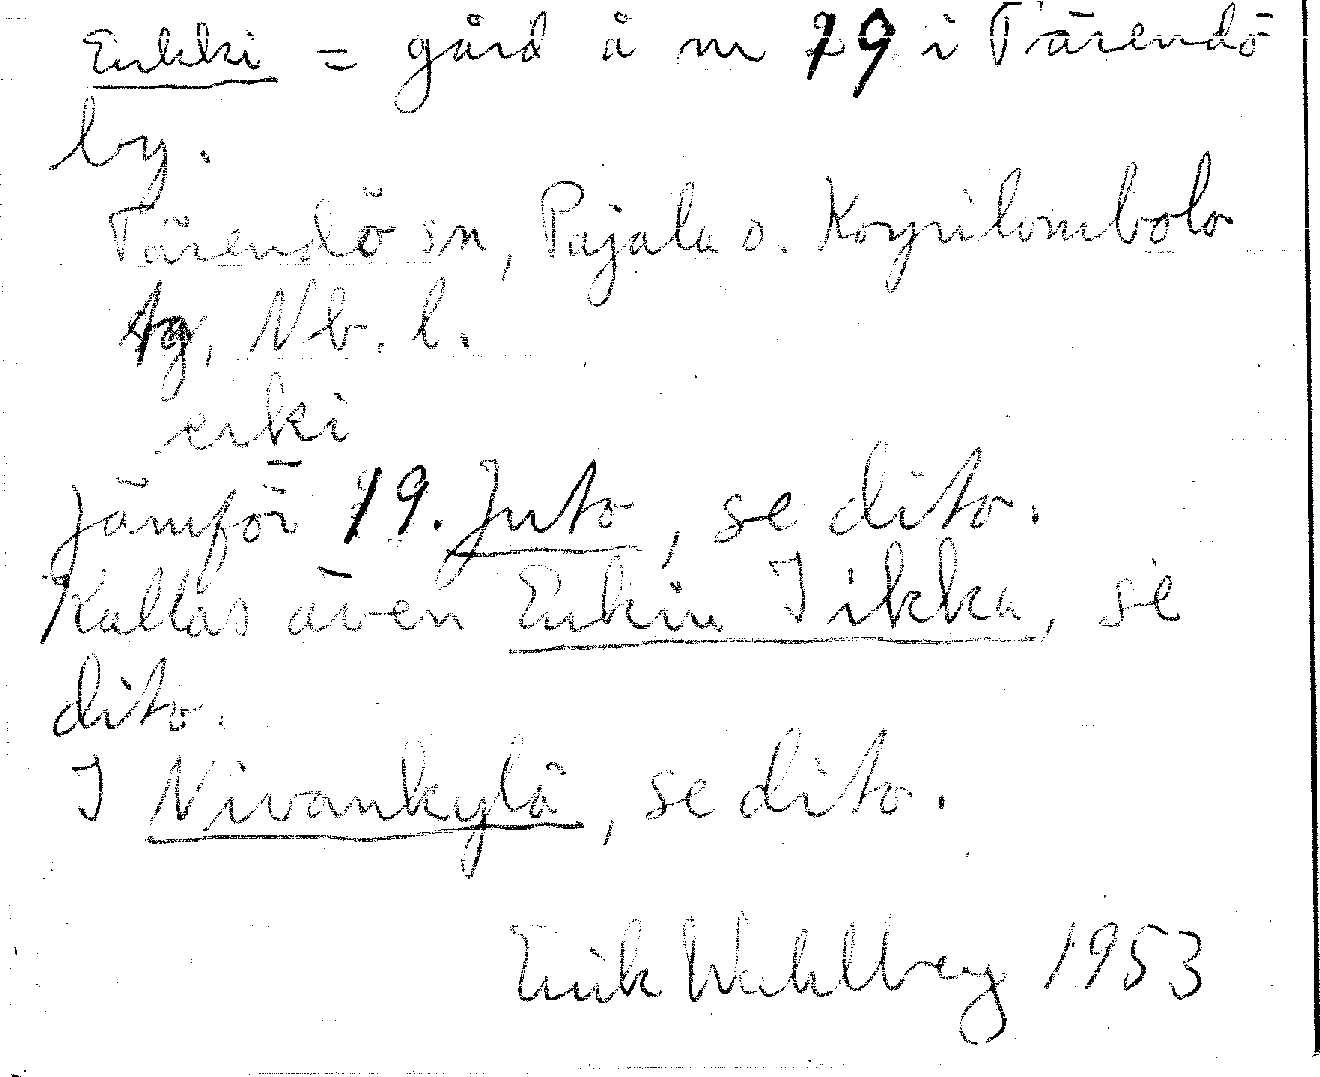 Erkki = gård å nr 19 i Tärendö
by.
Tärendö sn, Pajala o. Korpilombolo
tg, Nb. l.
erki
Jämför 19. Juto, se dito.
Kallas även Erkin Iikka, se
dito.
I Nivankylä, se dito.
Erik Wahlberg 1953